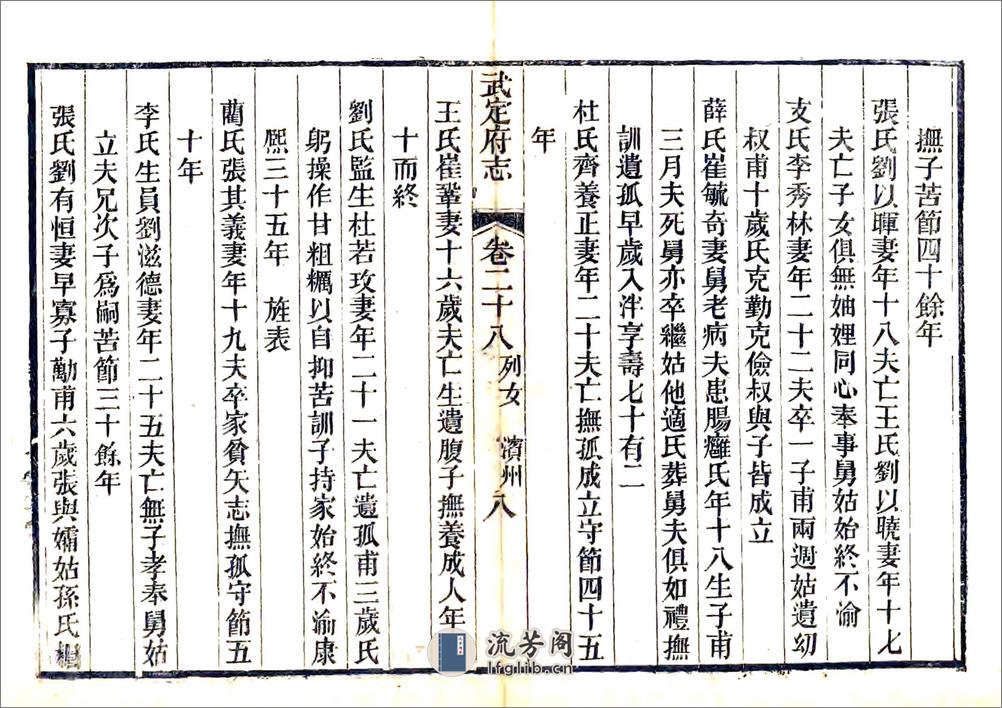 撫子苦節四十餘年
張氏劉以暉妻年十八夫亡王氏劉以曉妻年十七
夫亡子女俱無妯娌同心奉事舅姑始終不渝
支氏李秀林妻年二十二夫卒一子甫兩週姑遺幼
叔甫十歲氏克勤克儉叔與子皆成立
薛氏崔毓奇妻舅老病夫患腸癰氏年十八生子甫
三月夫死舅亦卒繼姑他適氏葬舅夫俱如禮撫
訓遺孤早歲入泮享壽七十有二
杜氏齊養正妻年二十夫亡撫孤成立守節四十五
年
武定府志 卷二十八 列女 濱州 八
王氏崔鞏妻十六歲夫亡生遺腹子撫養成人年
十而終
劉氏監生杜若玫妻年二十一夫亡遺孤甫三歲氏
躬操作甘粗糲以自抑苦訓子持家始終不渝康
熙三十五年 旌表
藺氏張其義妻年十九夫卒家貧矢志撫孤守節五
十年
李氏生員劉滋德妻年二十五夫亡無子孝奉舅姑
立夫兄次子爲嗣苦節三十餘年
張氏劉有恒妻早寡子勷甫六歲張與孀姑孫氏
流芳阁
lfglib.cn